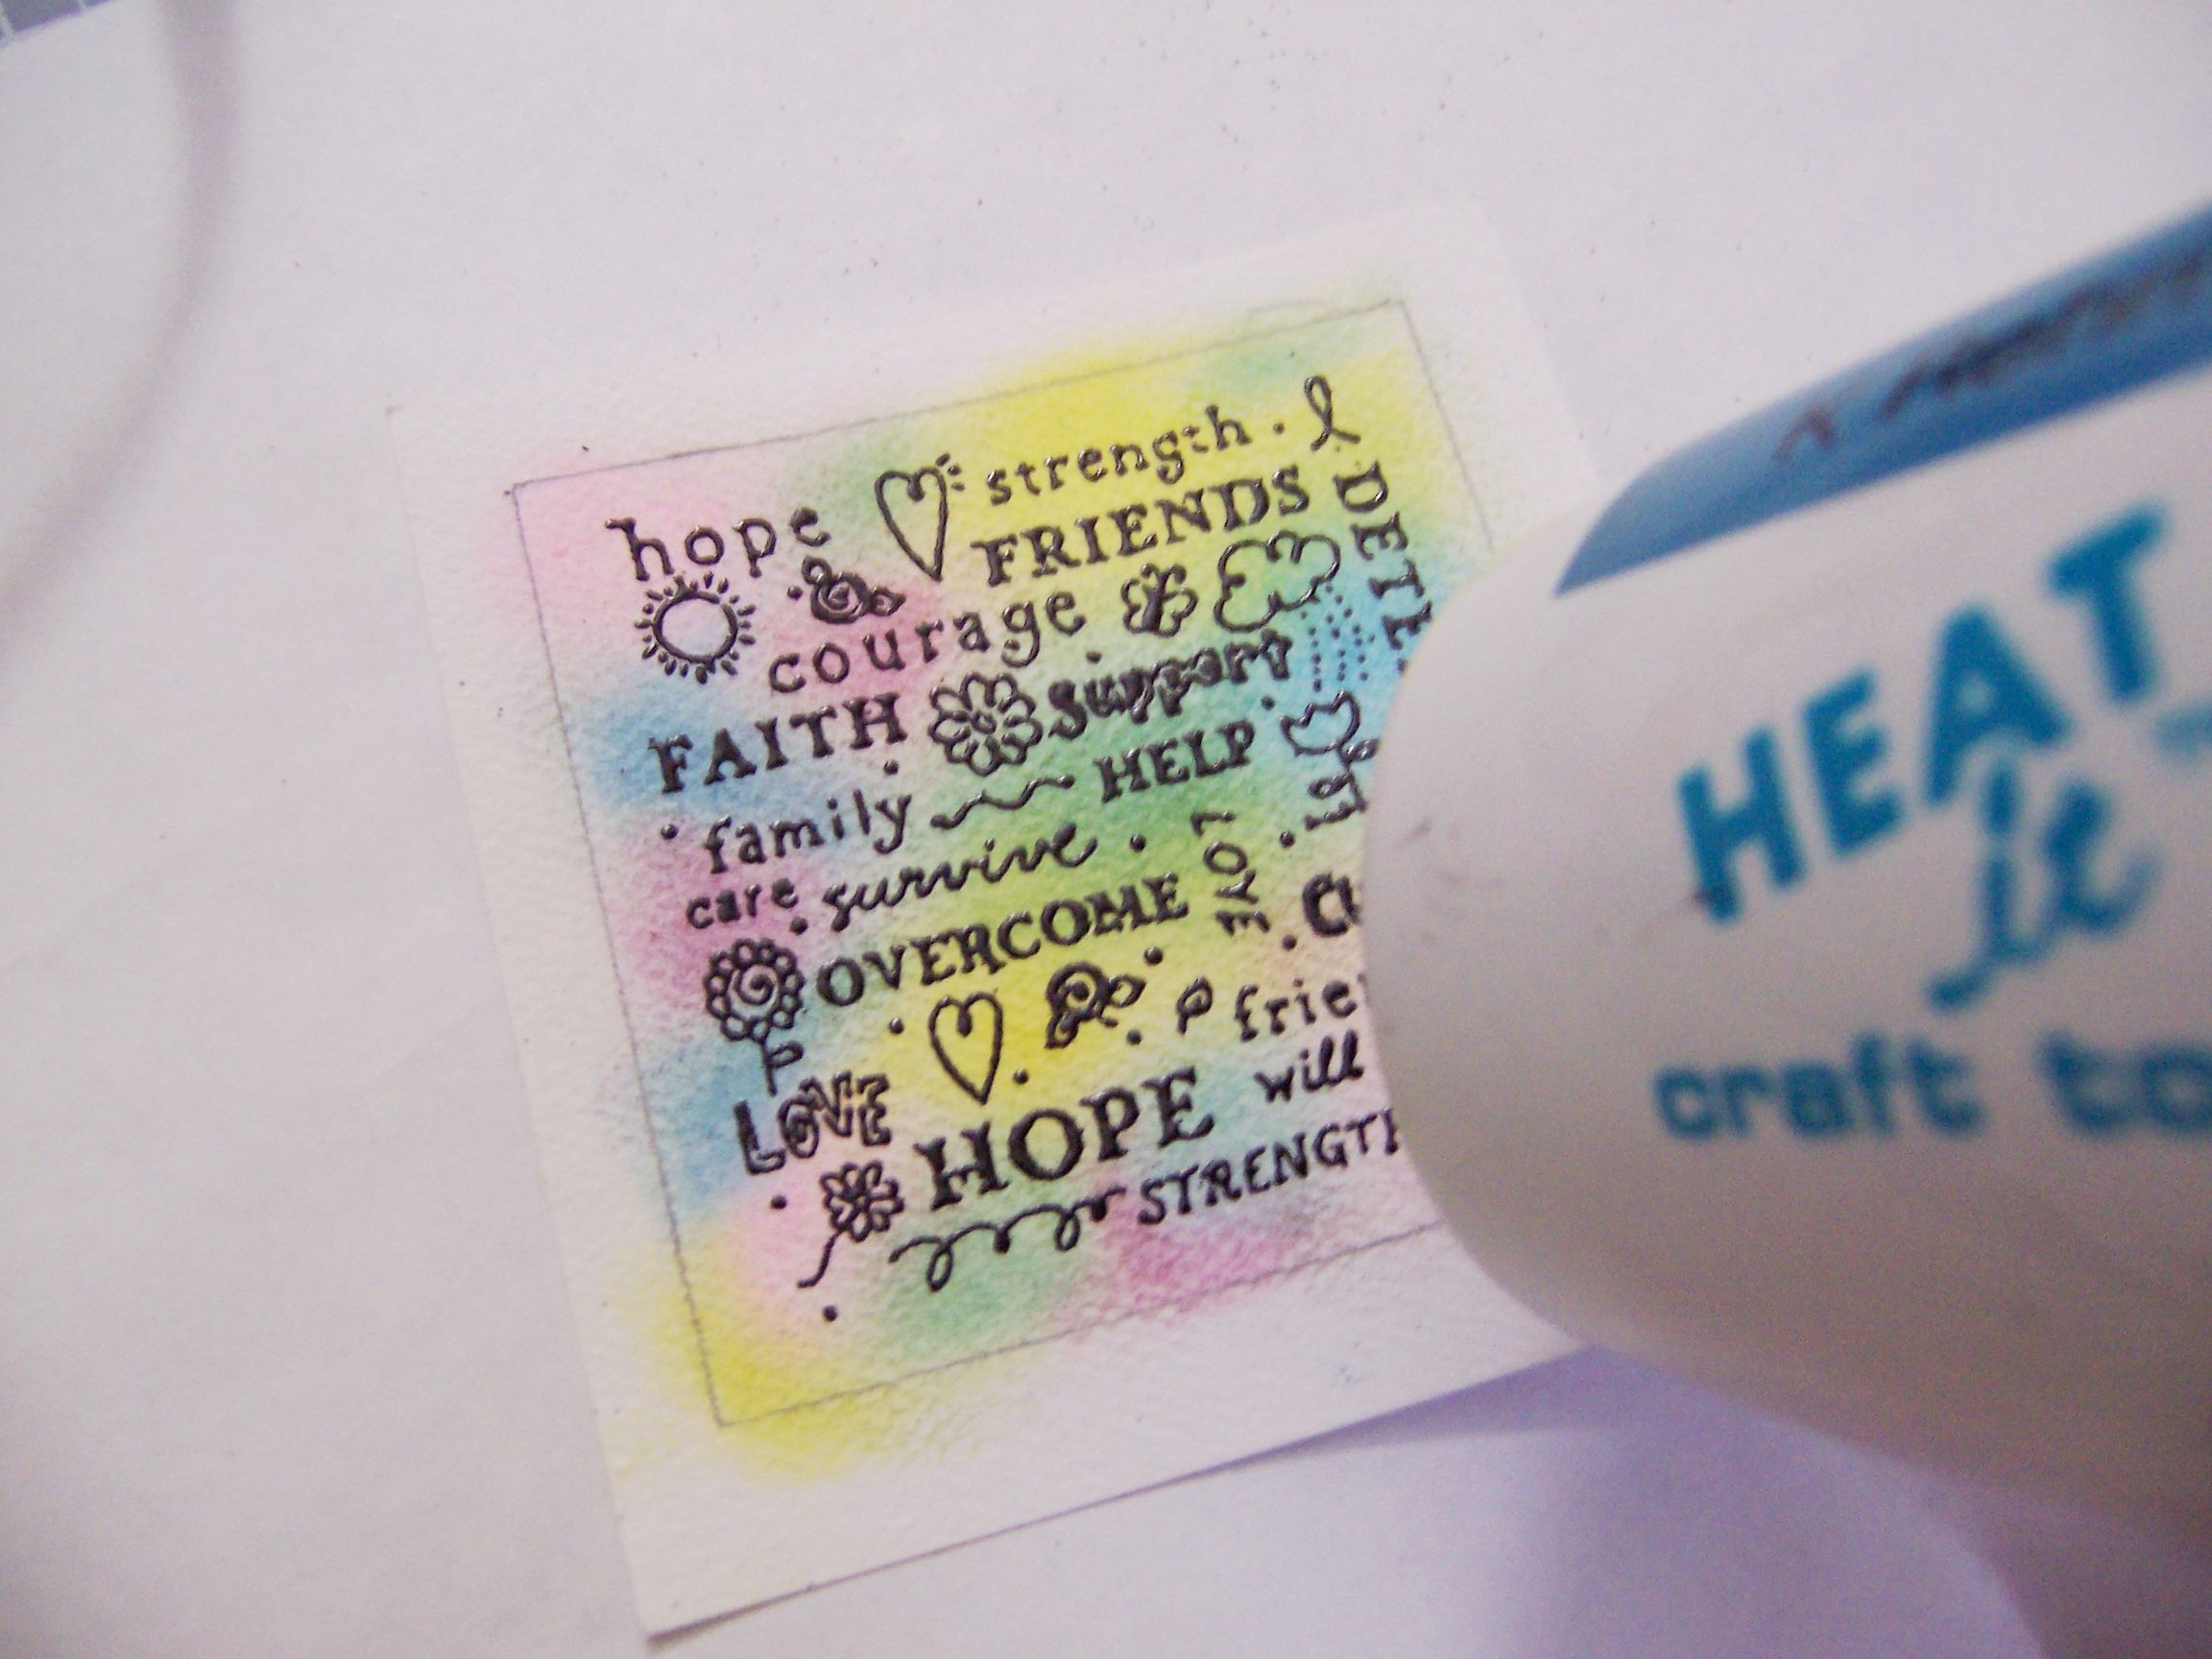 hope strength
FRIENDS
courage
FAITH support
family HELP
care survive LOVE
OVERCOME
LOVE HOPE will
HEAT
it
craft